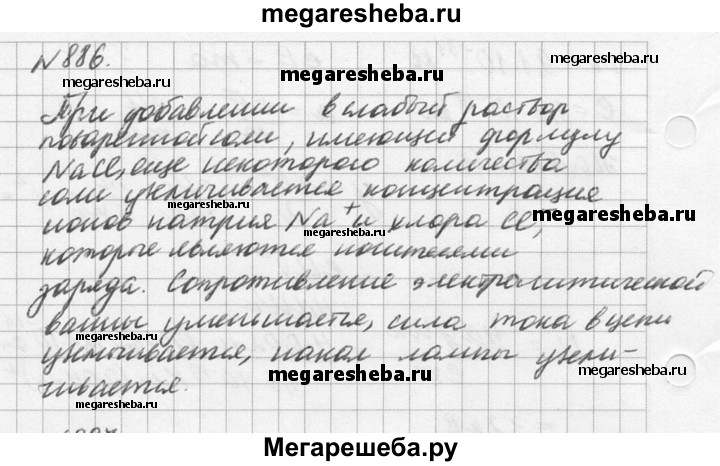 megaresheba.ru
N 886.
megaresheba.ru
При добавлении в слабый раствор
поваренной соли, имеющий формулу
megaresheba.ru
NaCl, еще некоторого количества
соли увеличивается концентрация
megaresheba.ru
ионов натрия Na⁺ и хлора Cl⁻,
megaresheba.ru
megaresheba.ru
которые являются носителями
заряда. Сопротивление электролитической
ванны уменьшается, сила тока в цепи
megaresheba.ru
увеличивается, накал лампы увели-
megaresheba.ru
чивается.
megaresheba.ru
megaresheba.ru
Мегарешеба.ру